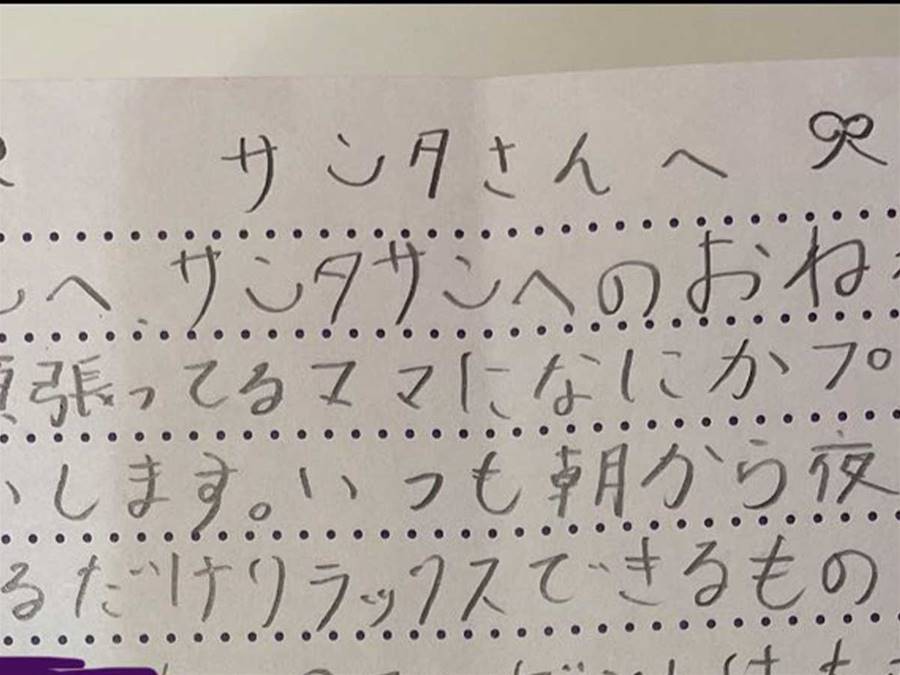 サンタさんへ
んへ、サンタサンへのおね
頑張ってるママになにかプ
いします。いつも朝から夜
るだけリラックスできるもの